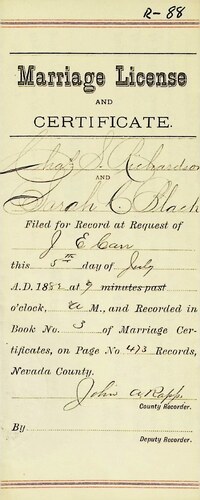 R-88
Marriage License
AND
CERTIFICATE.
Chas S. Richardson
AND
Sarah C Black
Filed for Record at Request of
J E Carr
this 5th day of July
A.D. 1882 at 9 minutes past
o'clock, A M., and Recorded in
Book No. 3 of Marriage Cer-
tificates, on Page No 473 Records,
Nevada County.
John A Rapp
County Recorder.
By
Deputy Recorder.